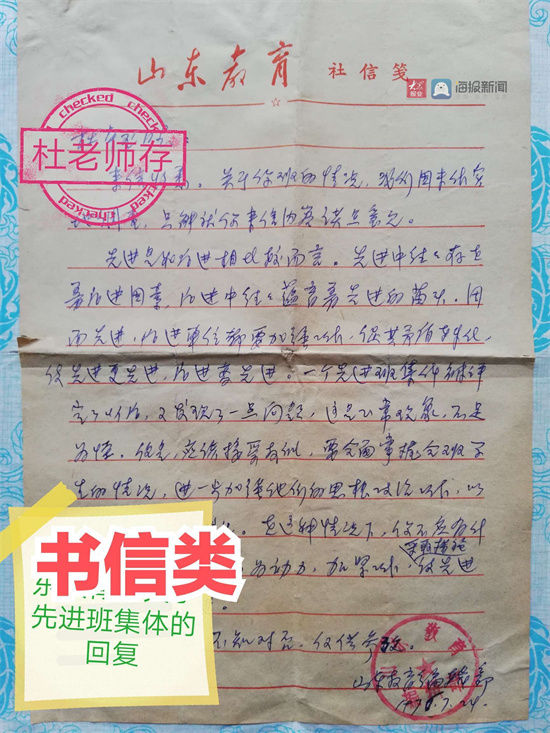 山东教育 社信笺
海报新闻
checked checked
杜老师存
checked checked
来信收悉。关于你班的情况，我们因未作实
地调查，只能就你来信内容谈点意见。
先进总和后进相比较而言。先进中往往存在
着后进因素，后进中往往蕴育着先进的苗头，因
而先进、后进单位都要加强工作，促其矛盾转化，
使先进更先进，后进变先进。一个先进班集体被评
定了以后，又发现了一点问题，这是正常现象，不足
为怪。但是，应该接受教训，要全面掌握全班学
生的情况，进一步加强他们的思想政治工作，以
在这种情况下，你不应有什
为动力，加紧工作，使先进
先进班集体的
回复
书信类
不知对否，仅供参考。
山东教育编辑部
1978.7.24.